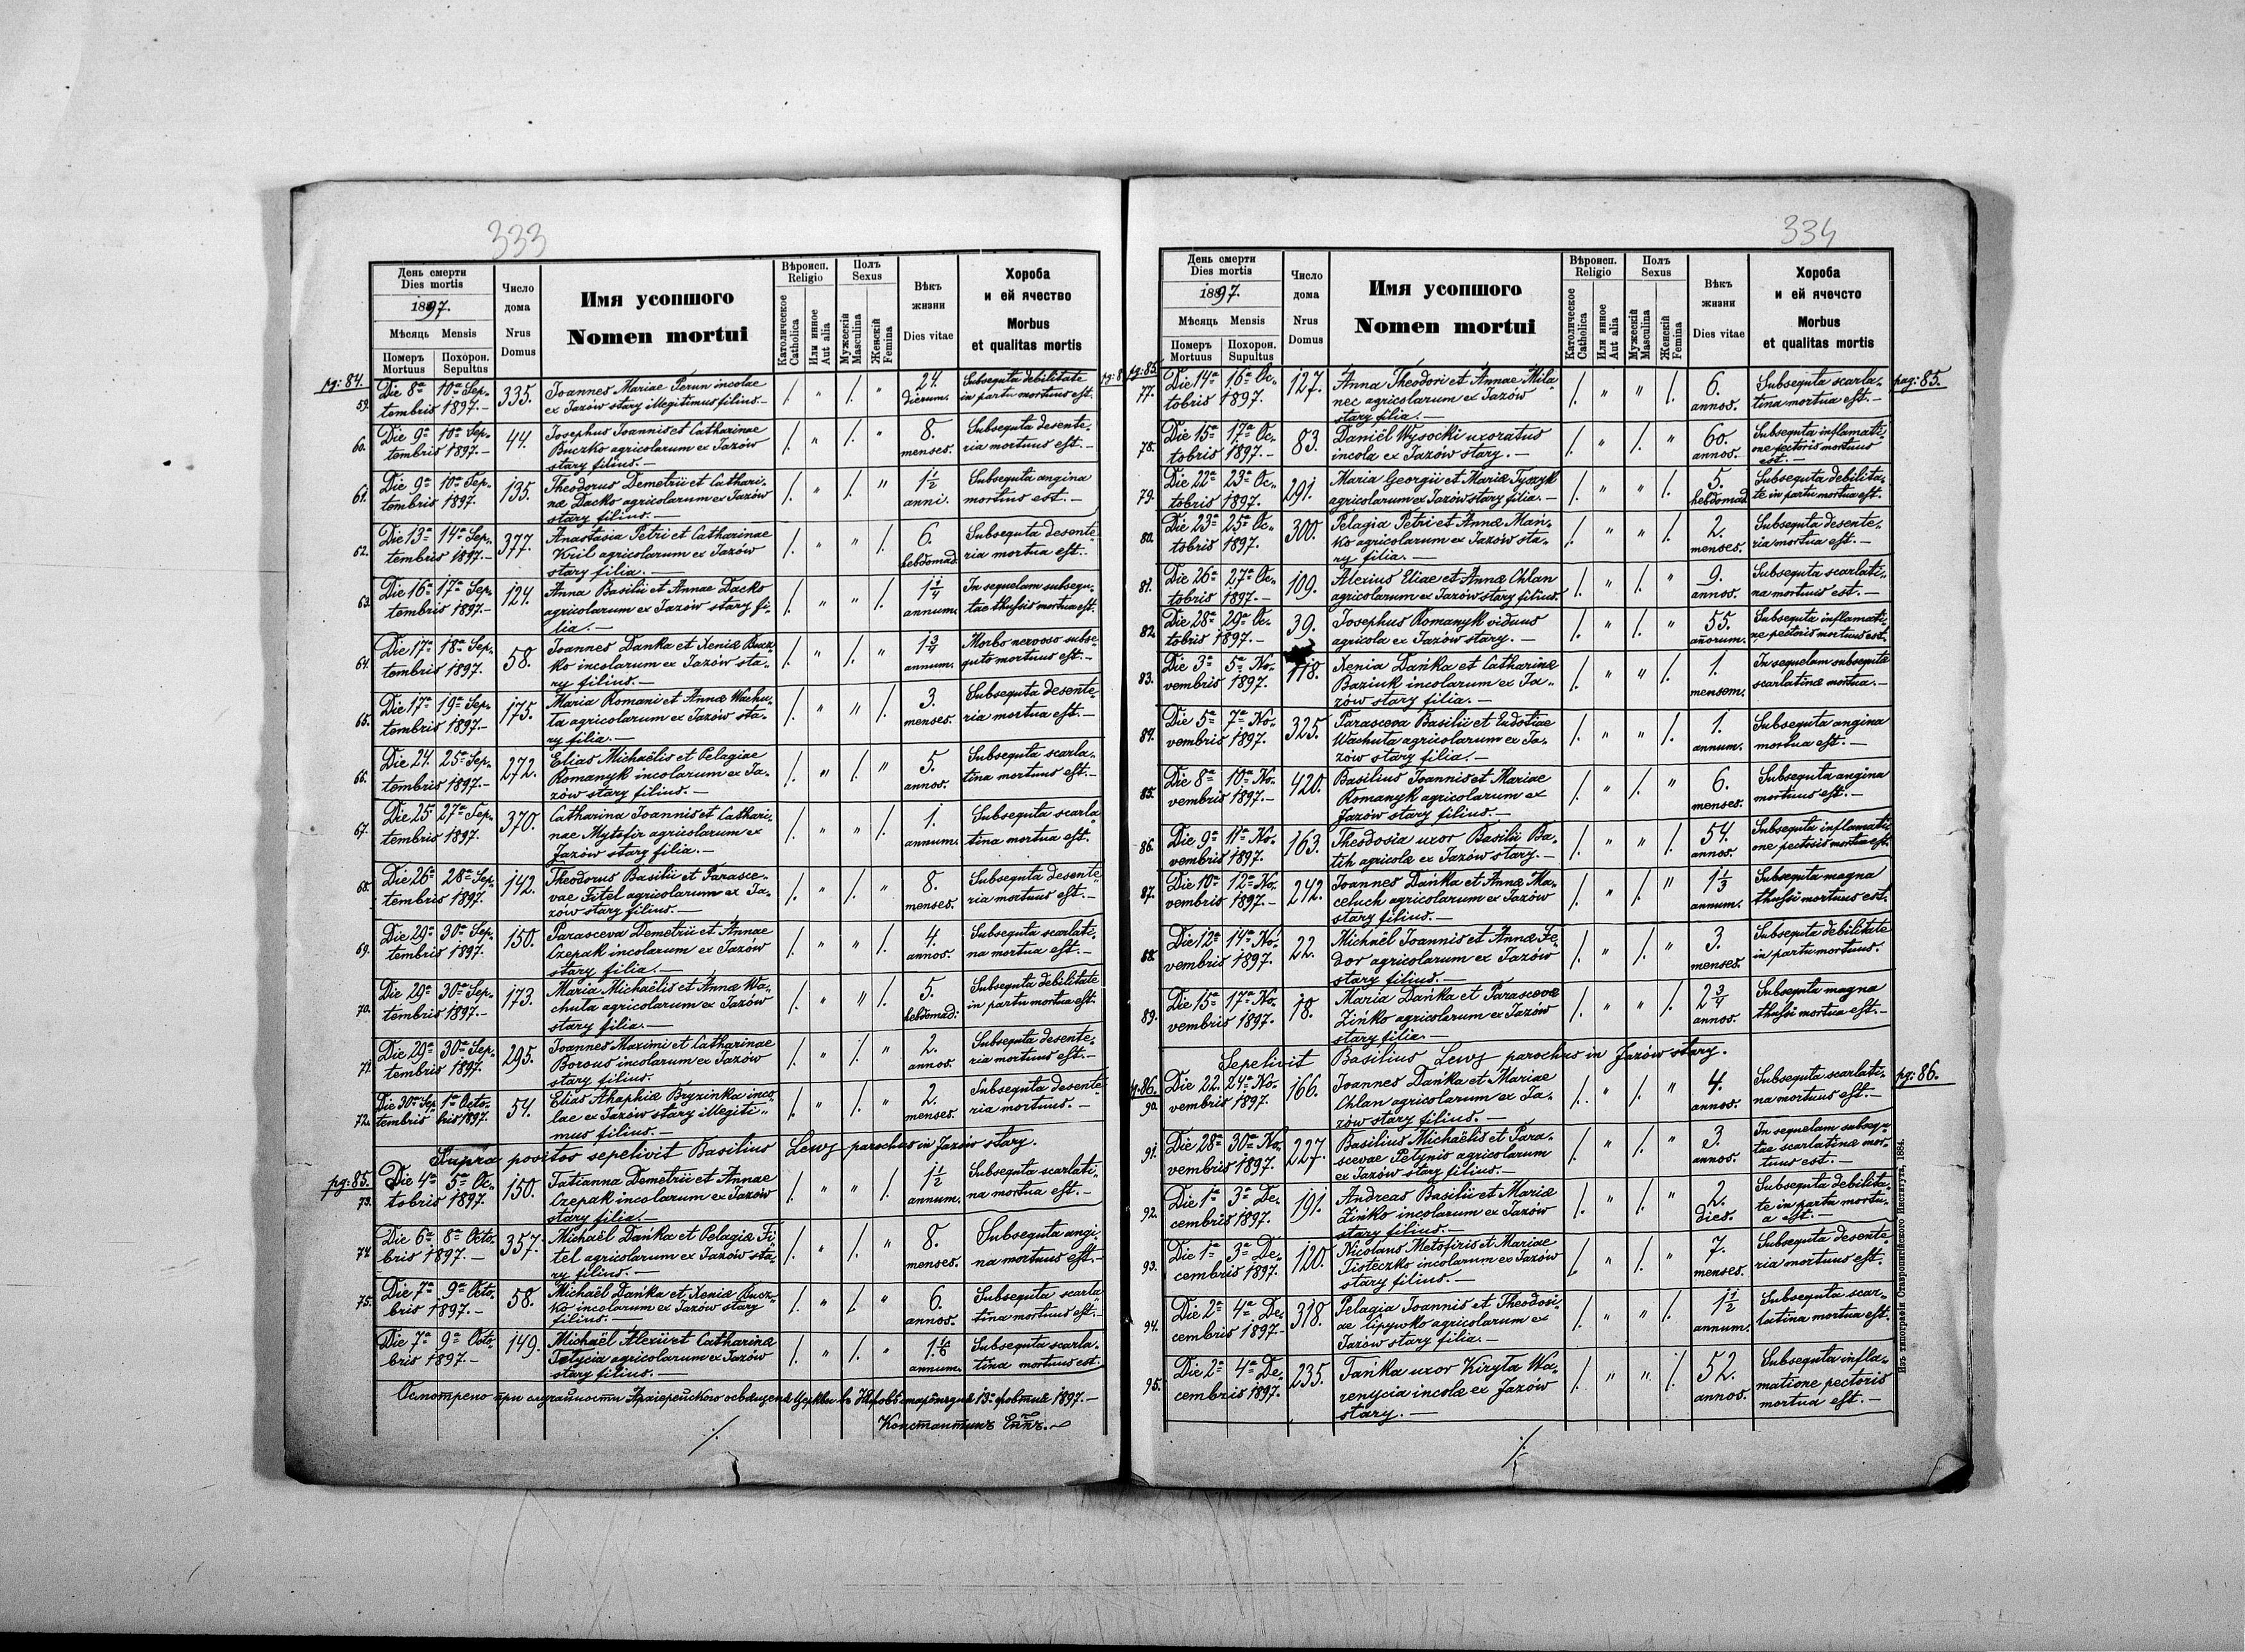 333
День смерти
Dies mortis
1897.
Мѣсяць Mensis
Померъ Mortuus
Похорон. Sepultus
Число дома
Nrus Domus
Имя усопшого
Nomen mortui
Вѣроисп.
Religio
Католическое Catholica
Или инное Aut alia
Полъ
Sexus
Мужескій Masculina
Женскій Femina
Вѣкъ жизни
Dies vitae
Хороба
и ей ячество
Morbus
et qualitas mortis
pg: 84.
59. Die 8ª 10ª Sep- 335. Joannes Mariae Perun incolae /. " /. " 24. Subsequta debilitate
tembris 1897.- ex Jazów stary illegitimus filius.- dierum. in partu mortuus est.
60. Die 9ª 10ª Sep- 44. Josephus Joannis et Catharinae /. " /. " 8. Subsequta desente-
tembris 1897.- Buczko agricolarum ex Jazów menses. ria mortuus est.-
stary filius.-
61. Die 9ª 10ª Sep- 135. Theodorus Demetrii et Cathari- /. " /. " 1 1/2 Subsequta angina
tembris 1897. næ Dacko agricolarum ex Jazów anni. mortuus est.-
stary filius.-
62. Die 13ª 14ª Sep- 377. Anastasia Petri et Catharinae /. " " /. 6. Subsequta desente-
tembris 1897.- Kril agricolarum ex Jazów hebdomad. ria mortua est.-
stary filia.-
63. Die 16ª 17ª Sep- 124. Anna Basilii et Annae Dacko /. " " /. 1 1/4 In sequelam subsequ-
tembris 1897.- agricolarum ex Jazów stary fi- annum. tae thussis mortua est.
lia.-
64. Die 17ª 18ª Sep- 58. Joannes Danka et Xeniæ Bucz- /. " /. " 1 3/4 Morbo nervoso subse-
tembris 1897. ko incolarum ex Jazów sta- annum. quto mortuus est.-
ry filius.-
65. Die 17ª 19ª Sep- 175. Maria Romani et Annæ Wachu- /. " " /. 3. Subsequta desente-
tembris 1897.- ta agricolarum ex Jazów sta- menses. ria mortua est.-
ry filia.-
66. Die 24. 25ª Sep- 272. Elias Michaëlis et Pelagiae /. " /. " 5. Subsequta scarla-
tembris 1897.- Romanyk incolarum ex Ja- annos. tina mortuus est.-
zów stary filius.-
67. Die 25 27ª Sep- 370. Catharina Joannis et Cathari- /. " " /. 1. Subsequta scarla-
tembris 1897. nae Mytofir agricolarum ex annum. tina mortua est.
Jazów stary filia.-
68. Die 26ª 28ª Sep- 142. Theodorus Basilii et Parasce- /. " /. " 8. Subsequta desente-
tembris 1897. vae Fitel agricolarum ex Ja- menses. ria mortuus est.-
zów stary filius.-
69. Die 29ª 30ª Sep- 150. Parasceva Demetrii et Annae /. " " /. 4. Subsequta scarlati-
tembris 1897. Czepak incolarum ex Jazów annos. na mortua est.-
stary filia.-
70. Die 29ª 30ª Sep- 173. Maria Michaëlis et Annæ Wa- /. " " /. 5. Subsequta debilitate
tembris 1897.- chuta agricolarum ex Jazów hebdomad: in partu mortua est.
stary filia.-
71. Die 29ª 30ª Sep- 295. Joannes Maximi et Catharinae /. " /. " 2. Subsequta desente-
tembris 1897. Borous incolarum ex Jazów annos. ria mortuus est.-
stary filius.
72. Die 30ª Sep- 1ª Octo- 54. Elias Ahaphiæ Bryzinka inco- /. " /. " 2. Subsequta desente-
tembris bris 1897. lae ex Jazów stary illegiti- menses. ria mortuus.-
mus filius.-
Supra positos sepelivit Basilius Lewj parochus in Jazów stary.
pg: 85.
73. Die 4ª 5ª Oc- 150. Tatianna Demetrii et Annae /. " " /. 1 1/2 Subsequta scarlati-
tobris 1897. Czepak incolarum ex Jazów annum. na mortua est.-
stary filia.-
74. Die 6ª 8ª Octo- 357. Michaël Dańka et Pelagiæ Fi- /. " /. " 8. Subsequta angi-
bris 1897.- tel agricolarum ex Jazów sta- menses. na mortuus est.-
ry filius.-
75. Die 7ª 9ª Octo- 58. Michaël Dańka et Xeniæ Bucz- /. " /. " 6. Subsequta scarla-
bris 1897.- ko incolarum ex Jazów stary annos. tina mortuus est.-
filius.-
Die 7ª 9ª Octo- 149. Michaël Alexii et Catharinæ /. " /. " Subsequta scarla-
bris 1897.- Tetycia agricolarum ex Jazów annum. tina mortuus est.
stary filius.-
Осмотрено при случайности Архіерейского освященія Церкви въ Язовѣ старомъ дня 13. жовтня 1897.-
Константинъ Епп̃ъ.
/.
334
День смерти
Dies mortis
1897.
Мѣсяць Mensis
Померъ Mortuus
Похорон. Supultus
Число дома
Nrus Domus
Имя усопшого
Nomen mortui
Вѣроисп.
Religio
Католическое Catholica
Или инное Aut alia
Полъ
Sexus
Мужескій Masculina
Женскій Femina
Вѣкъ жизни
Dies vitae
Хороба
и ей ячечсто
Morbus
et qualitas mortis
pg: 85.
pag: 85.
77. Die 14ª 16ª Oc- 127. Anna Theodori et Annae Mila- /. " " /. 6. Subsequta scarla-
tobris 1897. nec agricolarum ex Jazów annos. tina mortua est.-
stary filia.-
78. Die 15ª 17ª Oc- 83. Daniël Wysocki uxoratus /. " /. " 60. Subsequta inflamati-
tobris 1897.- incola ex Jazów stary.- annos. one pectoris mortuus
est.-
79. Die 22ª 23ª Oc- 291. Maria Georgii et Mariæ Tyszyk /. " " /. 5. Subsequta debilita-
tobris 1897. agricolarum ex Jazów stary filia.- hebdomad. te in partu mortua est.
80. Die 23ª 25ª Oc- 300. Pelagia Petri et Annæ Mań- /. " " /. 2. Subsequta desente-
tobris 1897. ko agricolarum ex Jazów sta- menses. ria mortua est.-
ry filia.-
81. Die 26ª 27ª Oc- 109. Alexius Eliae et Annæ Chlan /. " /. " 9. Subsequta scarlati-
tobris 1897.- agricolarum ex Jazów stary filius. annos. na mortuus est.-
82. Die 28ª 29ª Oc- 39. Josephus Romanyk viduus /. " /. " 55. Subsequta inflamati-
tobris 1897.- agricola ex Jazów stary.- añorum. ne pectoris mortuus est.
83. Die 3ª 5ª No- 118. Xenia Dańka et Catharinæ /. " " /. 1. In sequelam subsequtæ
vembris 1897. Baziuk incolarum ex Ja- mensem. scarlatinæ mortua.-
zów stary filia.-
84. Die 5ª 7ª No- 325. Parasceva Basilii et Eudotiae /. " " /. 1. Subsequta angina
vembris 1897. Wachuta agricolarum ex Ja- annum. mortua est.-
zów stary filia.-
85. Die 8ª 10ª No- 420. Basilius Joannis et Mariae /. " /. " 6. Subsequta angina
vembris 1897.- Romanyk agricolarum ex menses. mortuus est.-
Jazów stary filius.-
86. Die 9ª 11ª No- 163. Theodosia uxor Basilii Ba- /. " " /. 54. Subsequta inflamati-
vembris 1897. tih agricolæ ex Jazów stary.- annos. one pectosis mortua est.
87. Die 10ª 12ª No- 242. Joannes Dańka et Annæ Ma- /. " /. " 1 1/3 Subsequta magna
vembris 1897.- celuch agricolarum ex Jazów annum. thussi mortuus est.
stary filius.-
88. Die 12ª 14ª No- 22. Michaël Joannis et Annæ Fe- /. " /. " 3. Subsequta debilitate
vembris 1897. dor agricolarum ex Jazów menses. in partu mortuus.
stary filius.-
89. Die 15ª 17ª No- 18. Maria Dańka et Parascevæ /. " " /. 2 3/4 Subsequta magna
vembris 1897. Zińko agricolarum ex Jazów annos. thussi mortua est.-
stary filia.-
Sepelivit Basilius Lewj parochus in Jazów stary.
g. 86.
pg: 86.
90. Die 22. 24ª No- 166. Joannes Dańka et Mariae /. " /. " 4. Subsequta scarlati-
vembris 1897. Chlan agricolarum ex Ja- annos. na mortuus est.-
zów stary filius.-
91. Die 28ª 30ª No- 227. Basilius Michaëlis et Para- /. " /. " 3. In sequelam subsequ-
vembris 1897. scevae Petynio agricolarum annos. tae scarlatinæ mor-
ex Jazów stary filius.- tuus est.-
92. Die 1ª 3ª De- 191. Andreas Basilii et Mariæ /. " /. " 2. Subsequta debilita-
cembris 1897. Zińko incolarum ex Jazów dies. te in partu mortu-
stary filius.- a est.-
93. Die 1ª 3ª De- 120. Nicolaus Metofiris et Mariae /. " /. " 7. Subsequta desente-
cembris 1897. Tisteczko incolarum ex Jazów menses. ria mortuus est.
stary filius.-
94. Die 2ª 4ª De- 318. Pelagia Joannis et Theodosi- /. " " /. 1 1/2 Subsequta scar-
cembris 1897.- ae agricolarum ex annum. latina mortua est.
Jazów stary filia.-
95. Die 2ª 4ª De- 235. Tańka uxor Kiryła Wa- /. " " /. 52. Subsequta infla-
cembris 1897. renycia incolæ ex Jazów annos. matione pectoris
stary.- mortua est.-
/.
Изъ типографіи Ставропигійского Института, 1884.